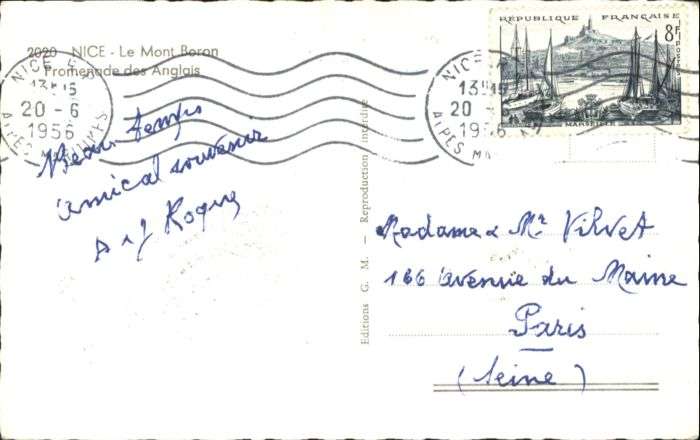 2020 - NICE - Le Mont Boron
Promenade des Anglais
NICE
13H15
20 - 6
1956
ALPES MARITIMES
Beau temps
amical souvenir
Editions G. M. - Reproduction interdite
RÉPUBLIQUE FRANÇAISE
8F
POSTES
NICE
13H15
20 - 6
1956
ALPES MARITIMES
Madame & Mr Vilvet
166 avenue du Maine
Paris
(Seine)